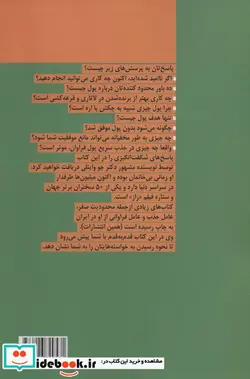 پاسخ‌تان به پرسش‌های زیر چیست؟
اگر ناامید شده‌اید، اکنون چه کاری می‌توانید انجام دهید؟
ده باور محدود کننده‌تان درباره پول چیست؟
چه کاری بهتر از برنده‌شدن در لاتاری و قرعه‌کشی است؟
چرا پول چیزی شبیه به چکش یا اره است؟
تنها هدف پول چیست؟
چگونه می‌شود بدون پول موفق شد؟
چه چیزی به طور مخفیانه می‌تواند مانع موفقیت شما شود؟
واقعاً چه چیزی در جذب سریع پول فراوان، موثر است؟
پاسخ‌های شگفت‌انگیزی را در این کتاب
توسط نویسنده مشهور دکتر جو وایتلی دریافت خواهید کرد.
او زمانی بی‌خانمان بوده و اکنون میلیون‌ها طرفدار
در سراسر دنیا دارد و یکی از ۵۰ سخنران برتر جهان
و ستاره فیلم «راز» است.
کتاب‌های زیادی ازجمله محدودیت صفر،
عامل جذب و عامل فراوانی از او در ایران
به چاپ رسیده است (همین انتشارات).
وی در این کتاب قدم‌به‌قدم با شما پیش می‌رود
تا نحوه رسیدن به خواسته‌هایتان را به شما نشان دهد.
مشاهده و خرید این کتاب در:
iiketab.com